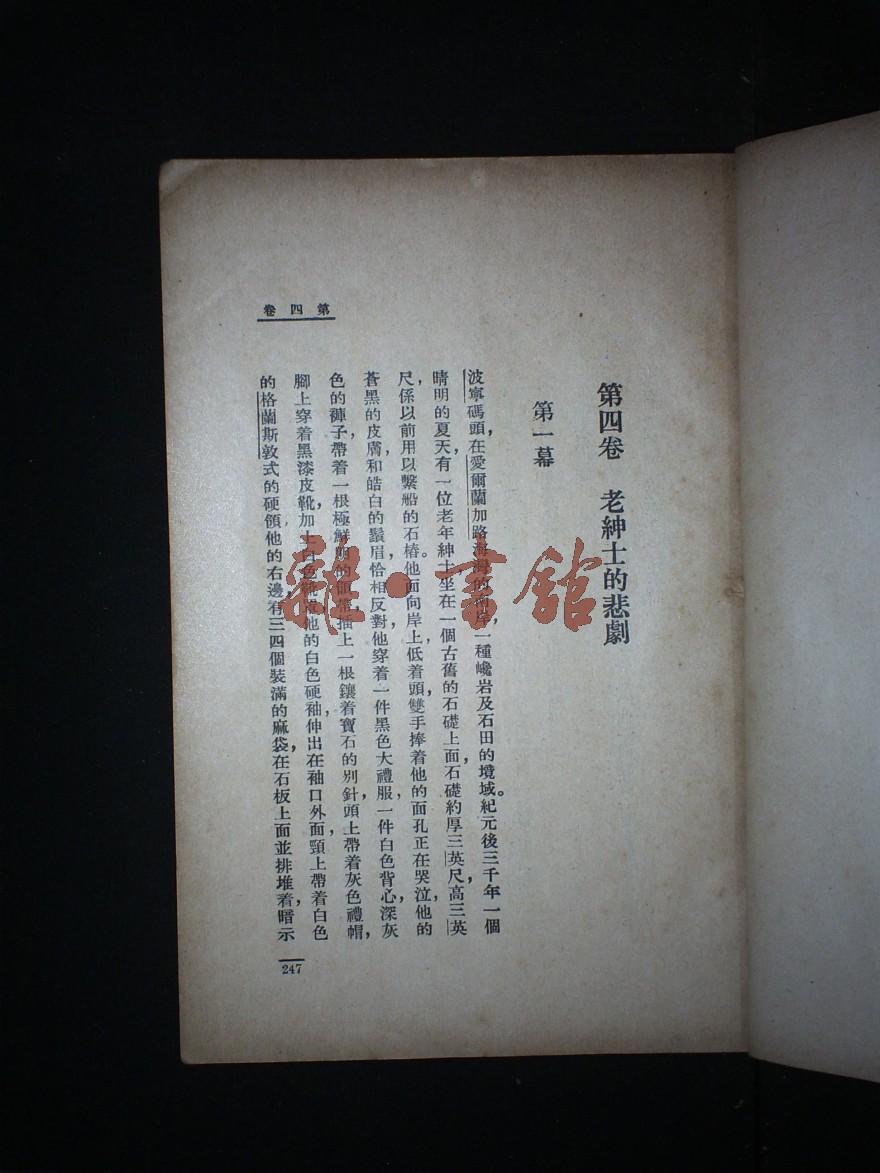 第四卷
第四卷　老紳士的悲劇
第一幕
波寧碼頭在愛爾蘭加路海灣的南岸，一種巉岩及石田的境域。紀元後三千年一個
晴明的夏天，有一位老年紳士，坐在一個古舊的石礎上面，石礎約厚三英尺，高三英
尺，係以前用以繫船的石樁。他面向岸上，低着頭，雙手捧着他的面孔，正在哭泣，他的
蒼黑的皮膚，和皓白的鬚眉，恰相反對，他穿着一件黑色大禮服，一件白色背心，深灰
色的褲子，帶着一根極鮮明的領帶，插上一根鑲着寶石的別針，頭上帶着灰色禮帽，
腳上穿着黑漆皮靴，加上白色靴罩，他的白色硬袖，伸出在袖口外面，頸上帶着白色
的格蘭斯敦式的硬領，他的右邊，有三四個裝滿的麻袋，在石板上面並排堆着，暗示
247
雜·書館